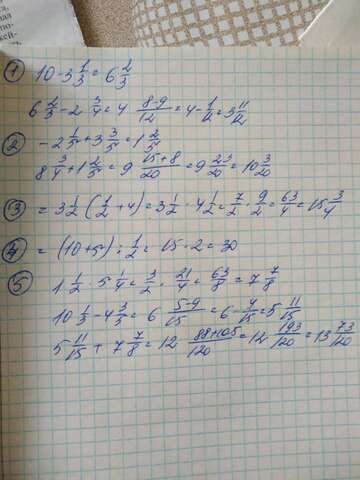 1) 10 - 3 1/3 = 6 2/3
6 2/3 - 2 3/4 = 4 8-9/12 = 4 - 1/12 = 3 11/12
2) - 2 1/5 + 3 3/5 = 1 2/5
8 3/4 + 1 2/5 = 9 15+8/20 = 9 23/20 = 10 3/20
3) = 3 1/2 (1/2 + 4) = 3 1/2 · 4 1/2 = 7/2 · 9/2 = 63/4 = 15 3/4
4) = (10+5) : 1/2 = 15 · 2 = 30
5) 1 1/2 · 5 1/4 = 3/2 · 21/4 = 63/8 = 7 7/8
10 1/3 - 4 3/5 = 6 5-9/15 = 6 - 4/15 = 5 11/15
5 11/15 + 7 7/8 = 12 88+105/120 = 12 193/120 = 13 73/120